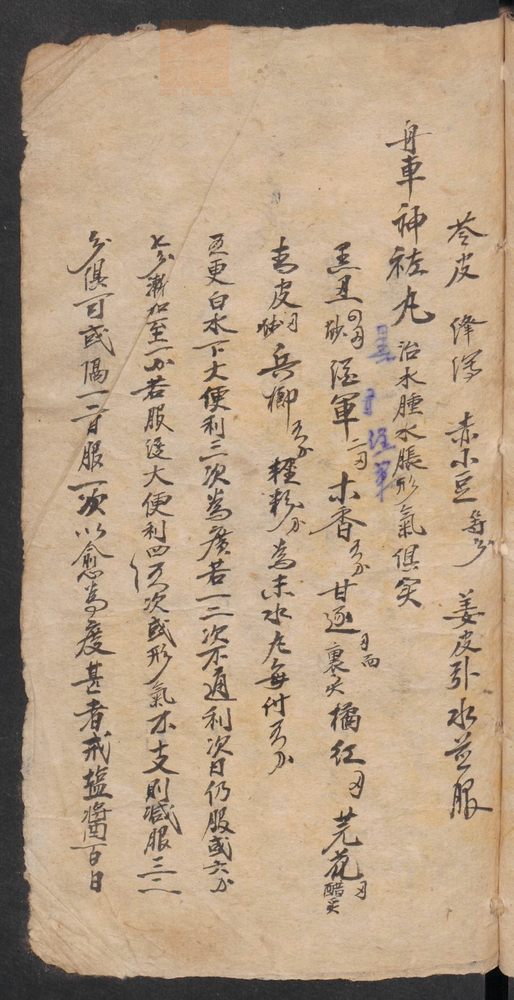 苓皮 澤瀉 赤小豆 等分 姜皮引水煎服
舟車神祐丸 治水腫水脹形氣俱实
黑丑 炒 四両 酒軍 二両 木香 五分 甘遂 面裹火 橘紅 芫花 醋炙
青皮 炒 兵榔 五分 軽粉 為末水丸每付五分
五更白水下大便利三次為度若一二次不通利次日仍服或六分
七分漸加至一分若服後大便利四五次或形氣不支則减服三二
分俱可或隔一二日服一次以愈為度甚者戒塩醬百日